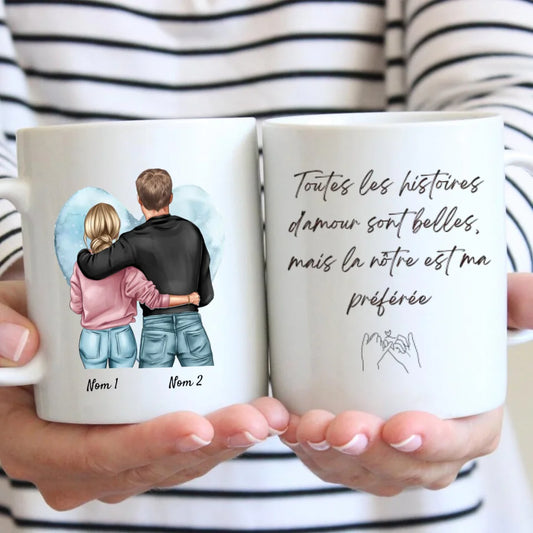 Nom 1
Nom 2
Toutes les histoires
d'amour sont belles,
mais la nôtre est ma
préférée